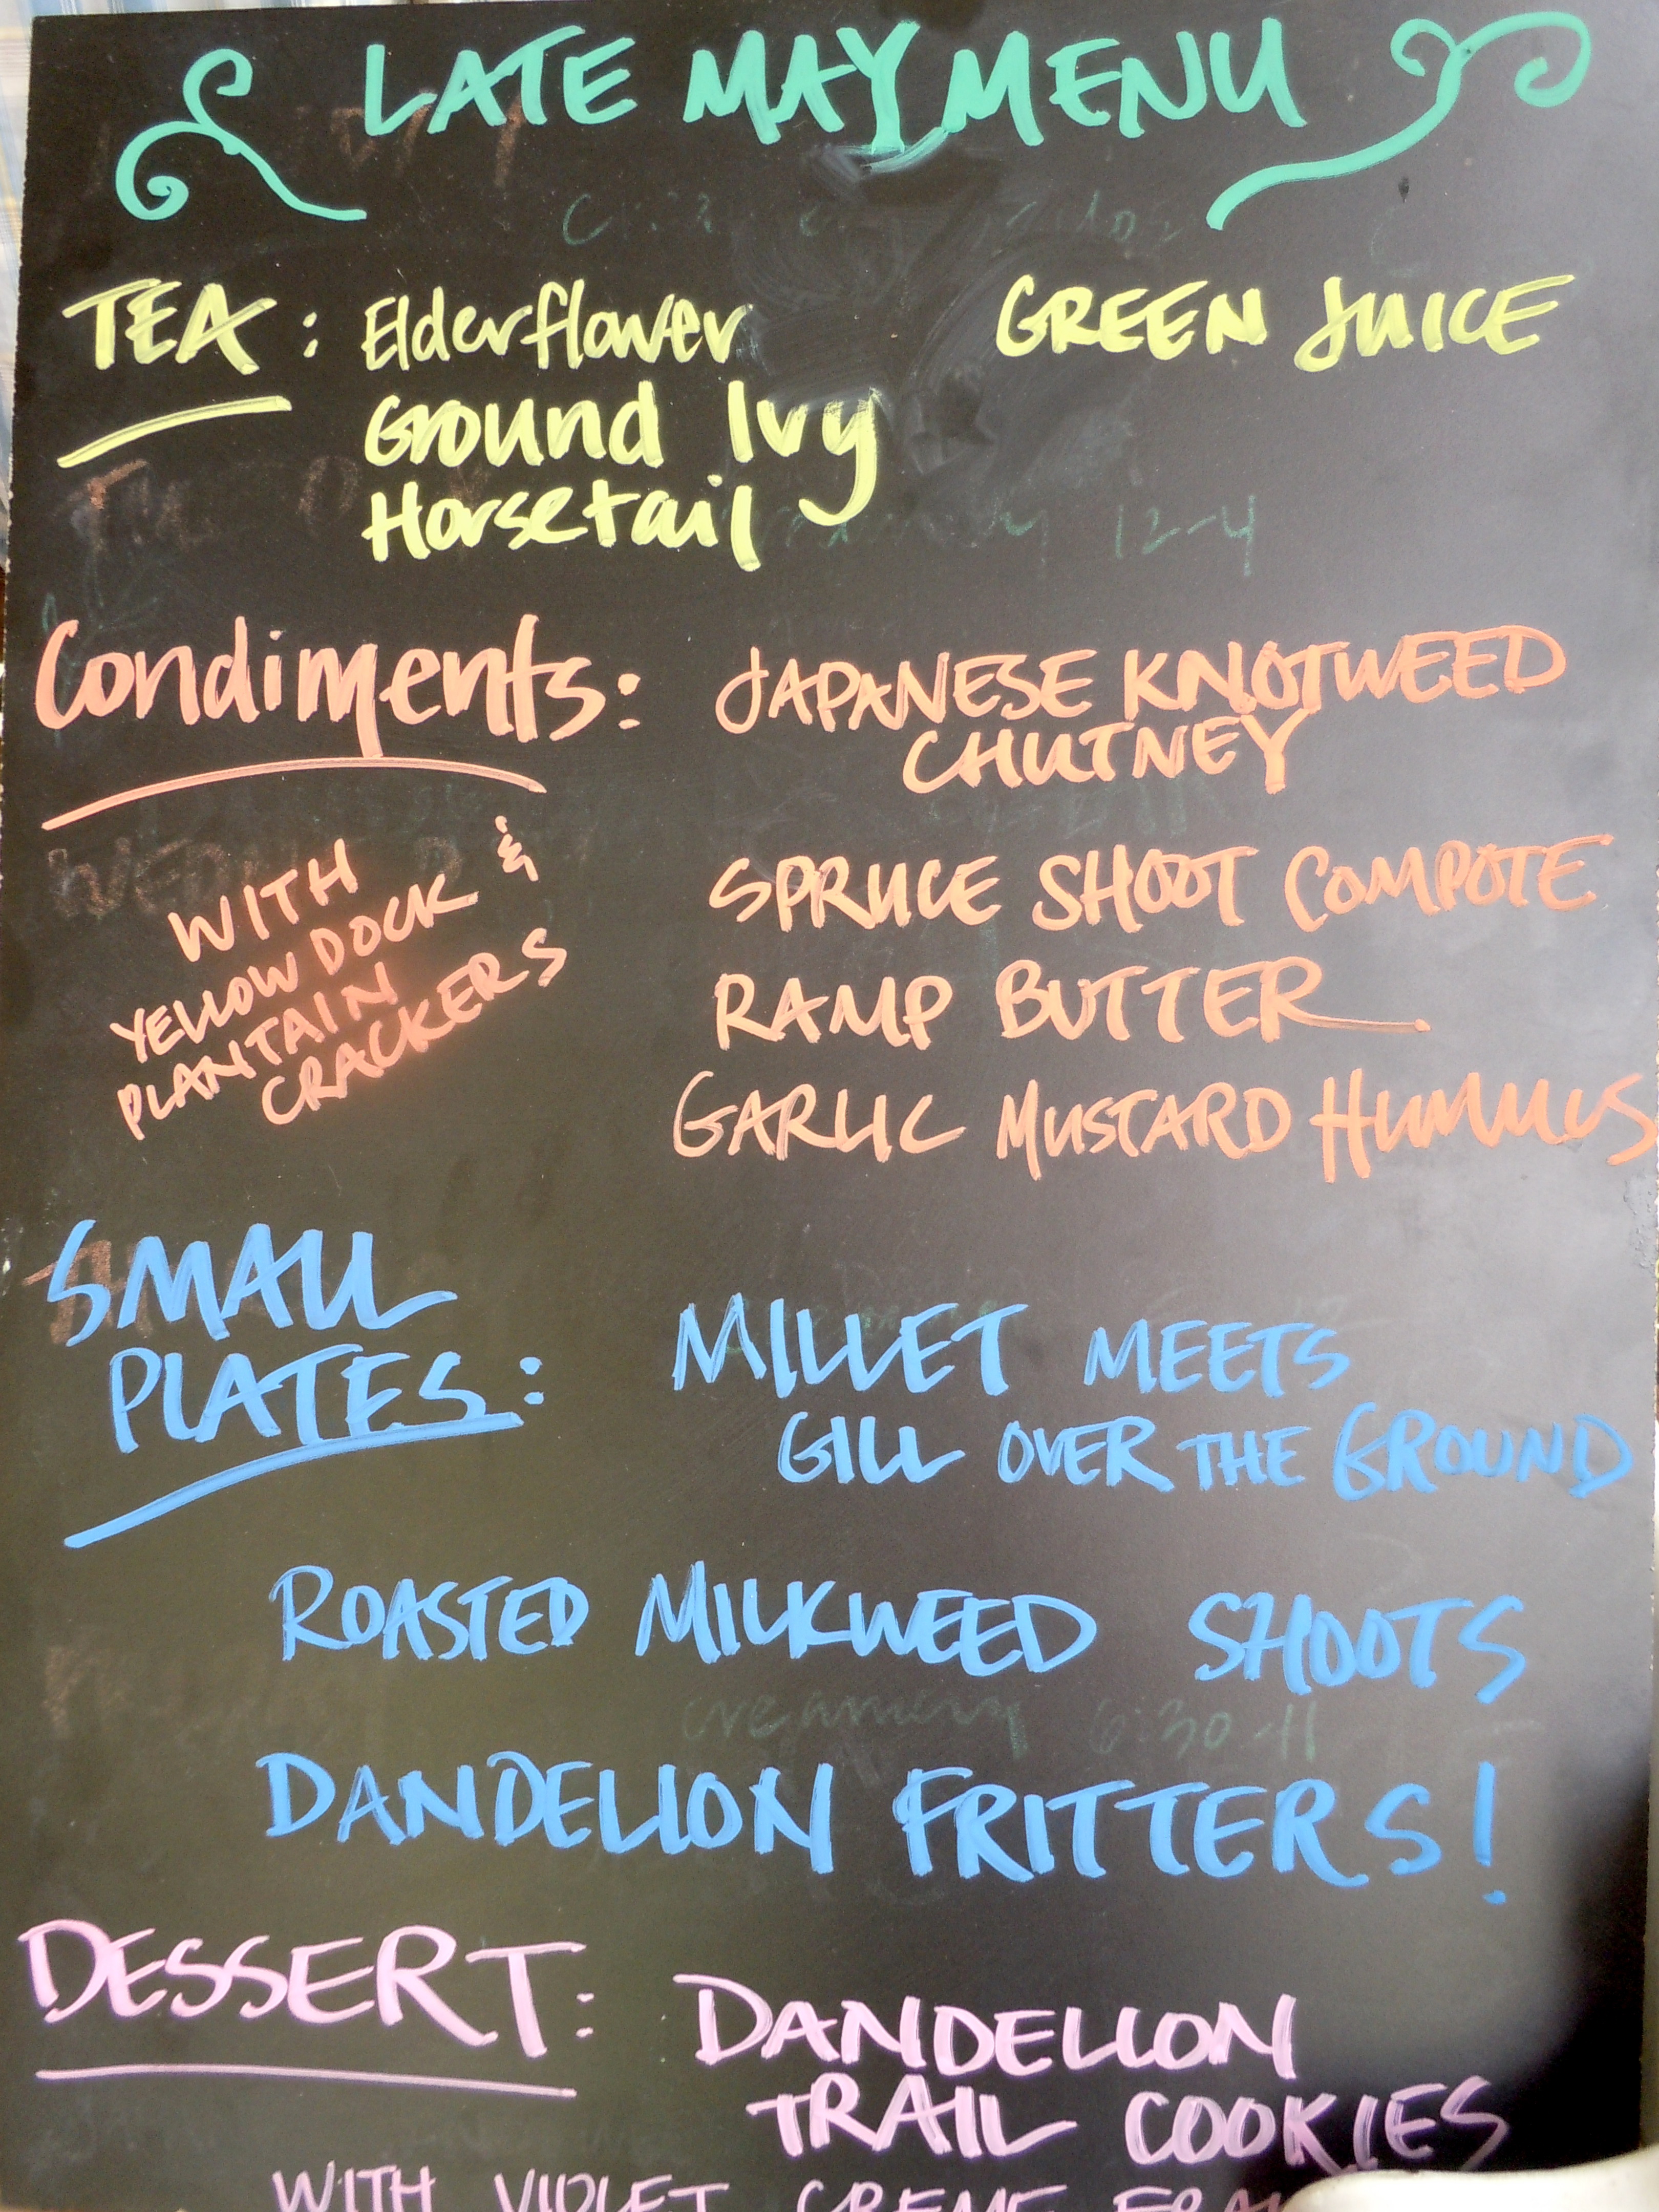 LATE MAY MENU
TEA: Elderflower
Ground Ivy
Horsetail
GREEN JUICE
Condiments:
WITH
YELLOW DOCK &
PLANTAIN
CRACKERS
JAPANESE KNOTWEED
CHUTNEY
SPRUCE SHOOT COMPOTE
RAMP BUTTER
GARLIC MUSTARD HUMMUS
SMALL
PLATES:
MILLET MEETS
GILL OVER THE GROUND
ROASTED MILKWEED SHOOTS
creamery 6:30-11
DANDELION FRITTERS!
DESSERT: DANDELION
TRAIL COOKIES
WITH VIOLET CREME
12-4